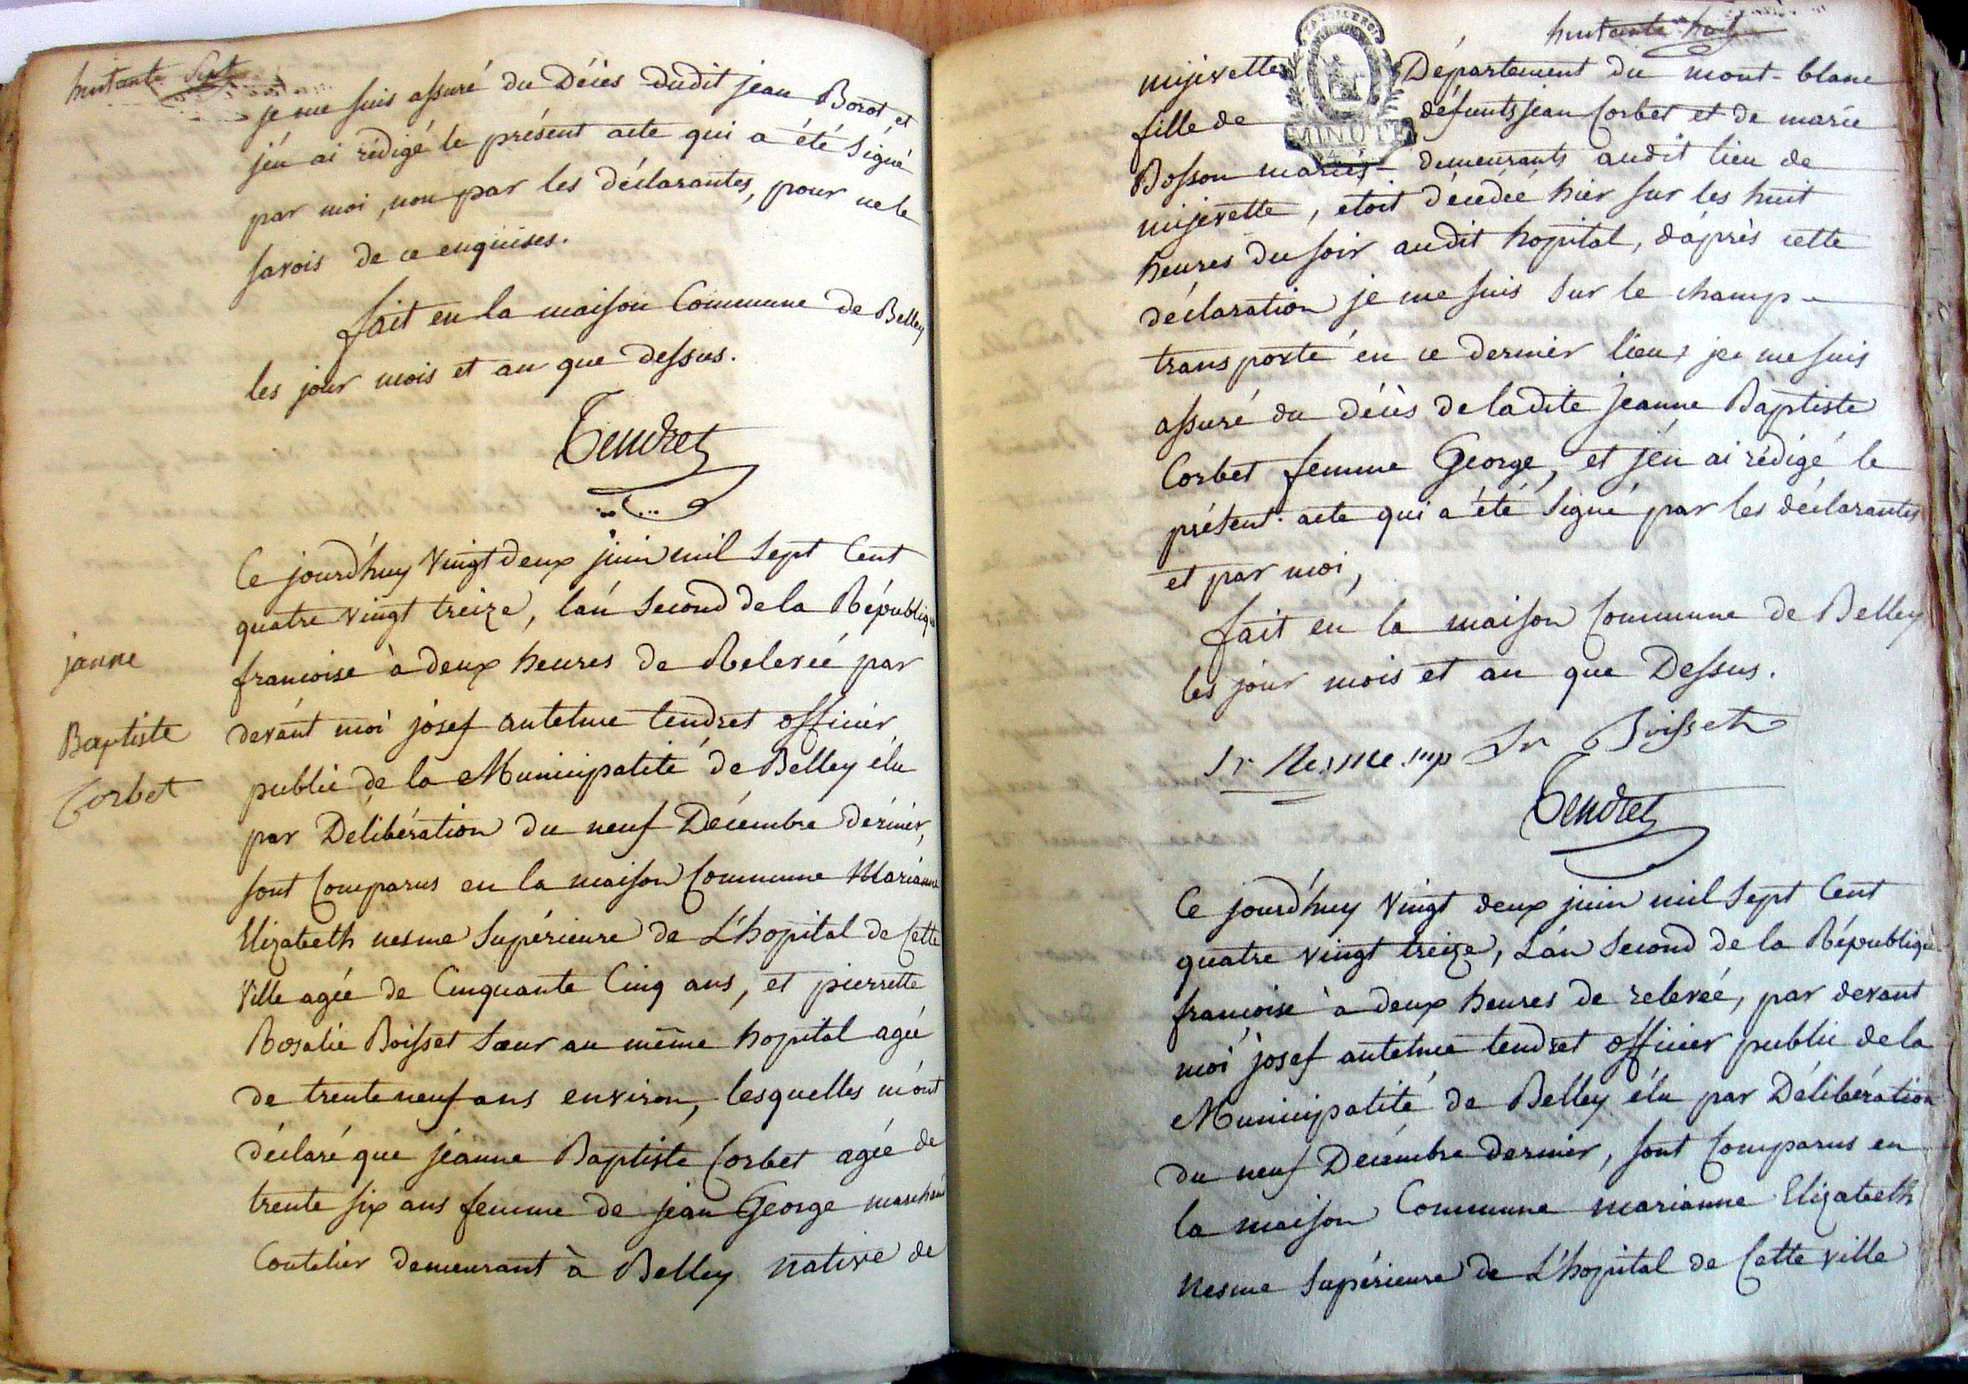 huitante sept
je me suis assuré du Déces dudit jean Borot et
jén ai rédigé le présent acte qui a été signé
par moi, non par les déclarantes, pour ne le
savois de ce enquises.
fait en la maison Commune de Belley
les jour mois et an que dessus.
Tendret
janne
Baptiste
Corbet
Ce jourd'huy vingt deux juin mil sept Cent
quatre vingt treize, lan second de la République
francoise à deux heures de Relevée par
devant moi josef antelme tendret officier
public de la Municipalité de Belley élu
par Délibération du neuf Décembre dernier,
sont Comparus en la maison Commune Marianne
Elizabeth nesme Supérieure de L'hopital de Cette
Ville agée de Cinquante Cinq ans, et pierrette
Rosalie Boisset Sœur au même hopital agée
de trente neuf ans environ, lesquelles m'ont
déclaré que jeanne Baptiste Corbet agée de
trente six ans femme de jean George marchand
Coutelier demeurant à Belley native de
huitante huit
mijevette Département du mont-blanc
fille de défunts jean Corbet et de marie
MINUTE
Bosson mariés demeurants audit lieu de
mijevette, etoit décédée hier sur les huit
heures du soir audit hopital, d'après cette
déclaration je me suis sur le champ
transporté en ce dernier lieu, je me suis
assuré du décès de ladite jeanne Baptiste
Corbet femme George, et jén ai rédigé le
présent acte qui a été signé par les déclarantes
et par moi,
fait en la maison Commune de Belley
les jour mois et an que Dessus.
Sr Nesme sup Sr Boisset
Tendret
Ce jourd'huy vingt deux juin mil sept Cent
quatre vingt treize, Lán second de la République
francoise à deux heures de relevée, par devant
moi josef antelme tendret officier public de la
Municipalité de Belley élu par Délibération
du neuf Décembre dernier, sont Comparus en
la maison Commune marianne Elizabeth
nesme Supérieure de L'hopital de Cette ville